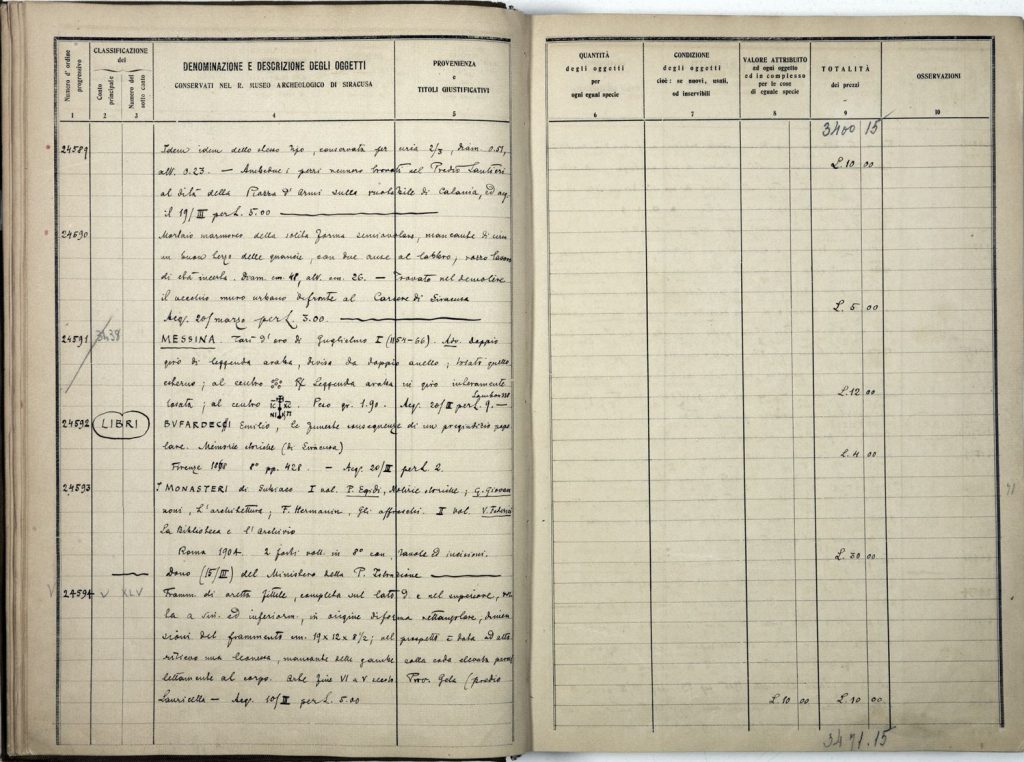 Numero d'ordine progressivo
CLASSIFICAZIONE
del
Conto principale
Numero del sotto conto
DENOMINAZIONE E DESCRIZIONE DEGLI OGGETTI
CONSERVATI NEL R. MUSEO ARCHEOLOGICO DI SIRACUSA
PROVENIENZA
e
TITOLI GIUSTIFICATIVI
1 2 3 4 5
24589 Idem idem dello stesso tipo, conservata per circa 2/3, diam. 0.51,
alt. 0.23. — Ambedue i pezzi vennero trovati nel Predio Santieri
al di là della Piazza d'Armi sulla ruotabile di Catania, ed acq.
il 19/III per L. 5.00
24590 Mortaio marmoreo della solita forma semiovolare, mancante di
un buon terzo delle quancie, con due anse al labbro; rozzo lavoro
di età incerta. Diam. cm. 48, alt. cm. 26. — Trovato nel demolire
il vecchio muro urbano di fronte al Carcere di Siracusa
Acq. 20/marzo per L. 3.00
24591 3438 MESSINA. Tarì d'oro di Guglielmo I (1154-66). Adv. doppio
giro di leggenda araba, divisa da doppio anello; tosato quello
esterno; al centro R/ Leggenda araba in giro interamente
tosata; al centro IC XC NI KA Peso gr. 1.90. Acq. 20/III per L. 9.—
24592 LIBRI BUFARDECI Emilio, le funeste conseguenze di un pregiudizio popo
lare. Memorie storiche (di Siracusa)
Firenze 1868 8º pp. 428. — Acq. 20/III per L. 2.
24593 I MONASTERI di Subiaco I vol. P. Egidi, Notizie storiche; G. Giovan
noni, L'architettura; F. Hermanin, Gli affreschi. II vol. V. Federici
La Biblioteca e l'Archivio
Roma 1904. 2 forti voll. in 8º con tavole ed incisioni.
Dono (15/III) del Ministero della P. Istruzione
V 24594 V XLV Framm. di aretta fittile, completa sul lato d. e nel superiore,
a sin. ed inferiorm., in origine di forma rettangolare, dimen
sioni del frammento cm. 19 x 12 x 8 1/2; nel prospetto è data ad alto
rilievo una leonessa, mancante delle gambe colla coda elevata
al corpo. Arte fine VI a V secolo Prov. Gela (predio
Lauricella — Acq. 10/III per L. 5.00
QUANTITÀ
degli oggetti
per
ogni egual specie
CONDIZIONE
degli oggetti
cioè: se nuovi, usati,
od inservibili
VALORE ATTRIBUITO
ad ogni oggetto
ed in complesso
per le cose
di eguale specie
TOTALITÀ
dei prezzi
OSSERVAZIONI
6 7 8 9 10
3400 15
L. 10 00
L. 5 00
L. 12 00
L. 4 00
L. 30 00
L. 10 00 L. 10 00
3471.15